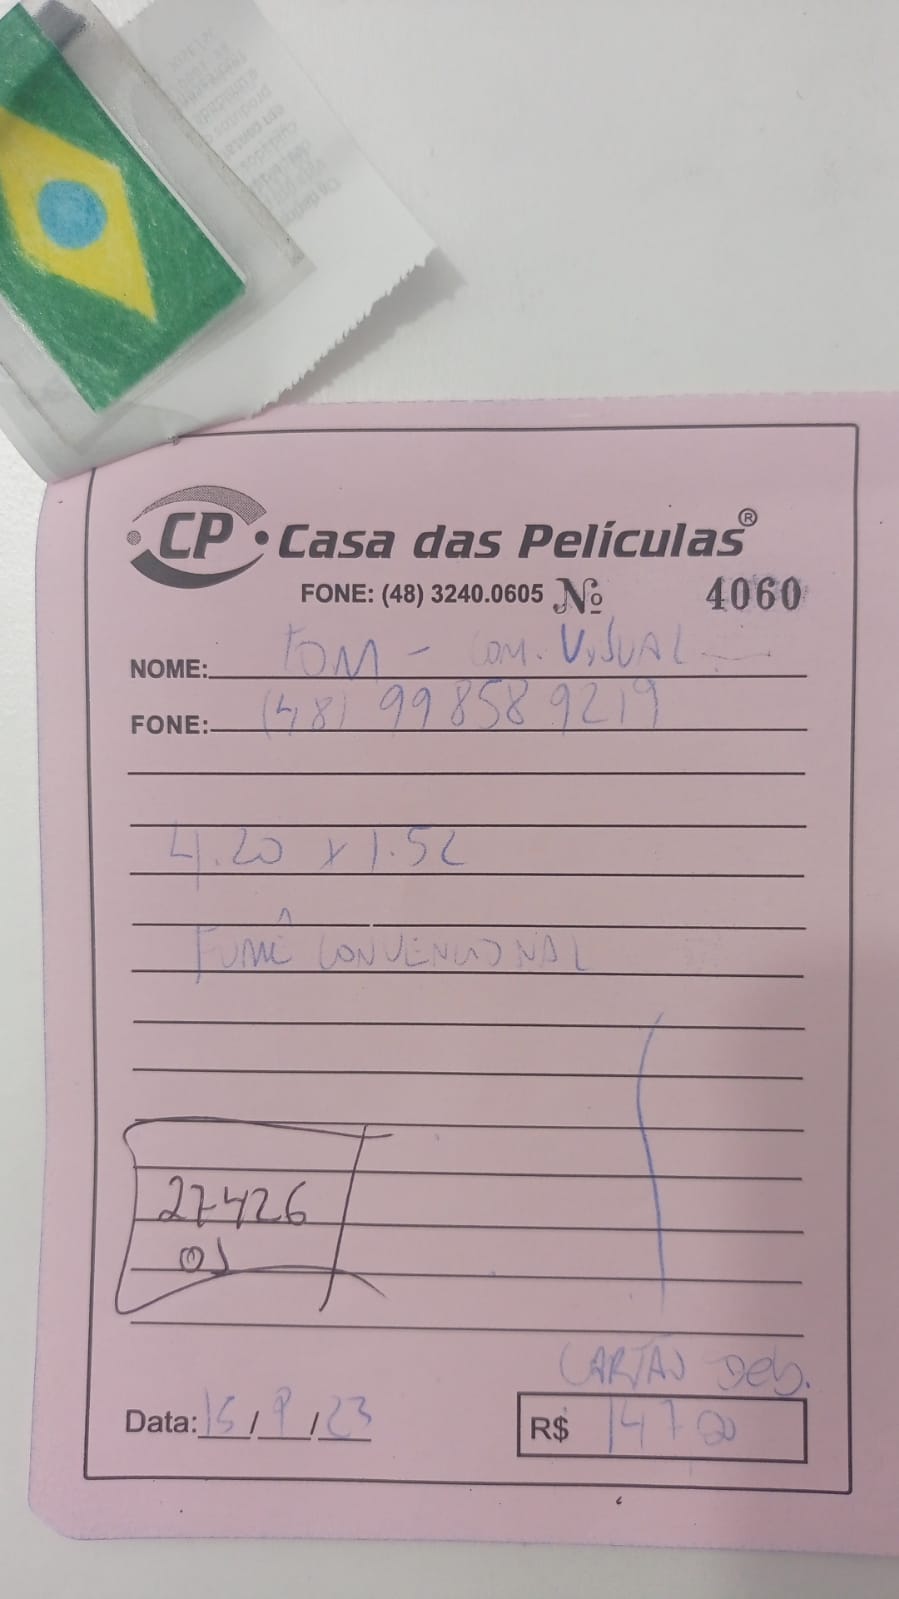 CP Casa das Películas®
FONE: (48) 3240.0605 Nº 4060
NOME: TOM - COM. VISUAL
FONE: (48) 99858 9219
4.20 x 1.52
FUMÊ CONVENCIONAL
27426
OS
CARTÃO DEB.
Data: 15/9/23 R$ 147 00